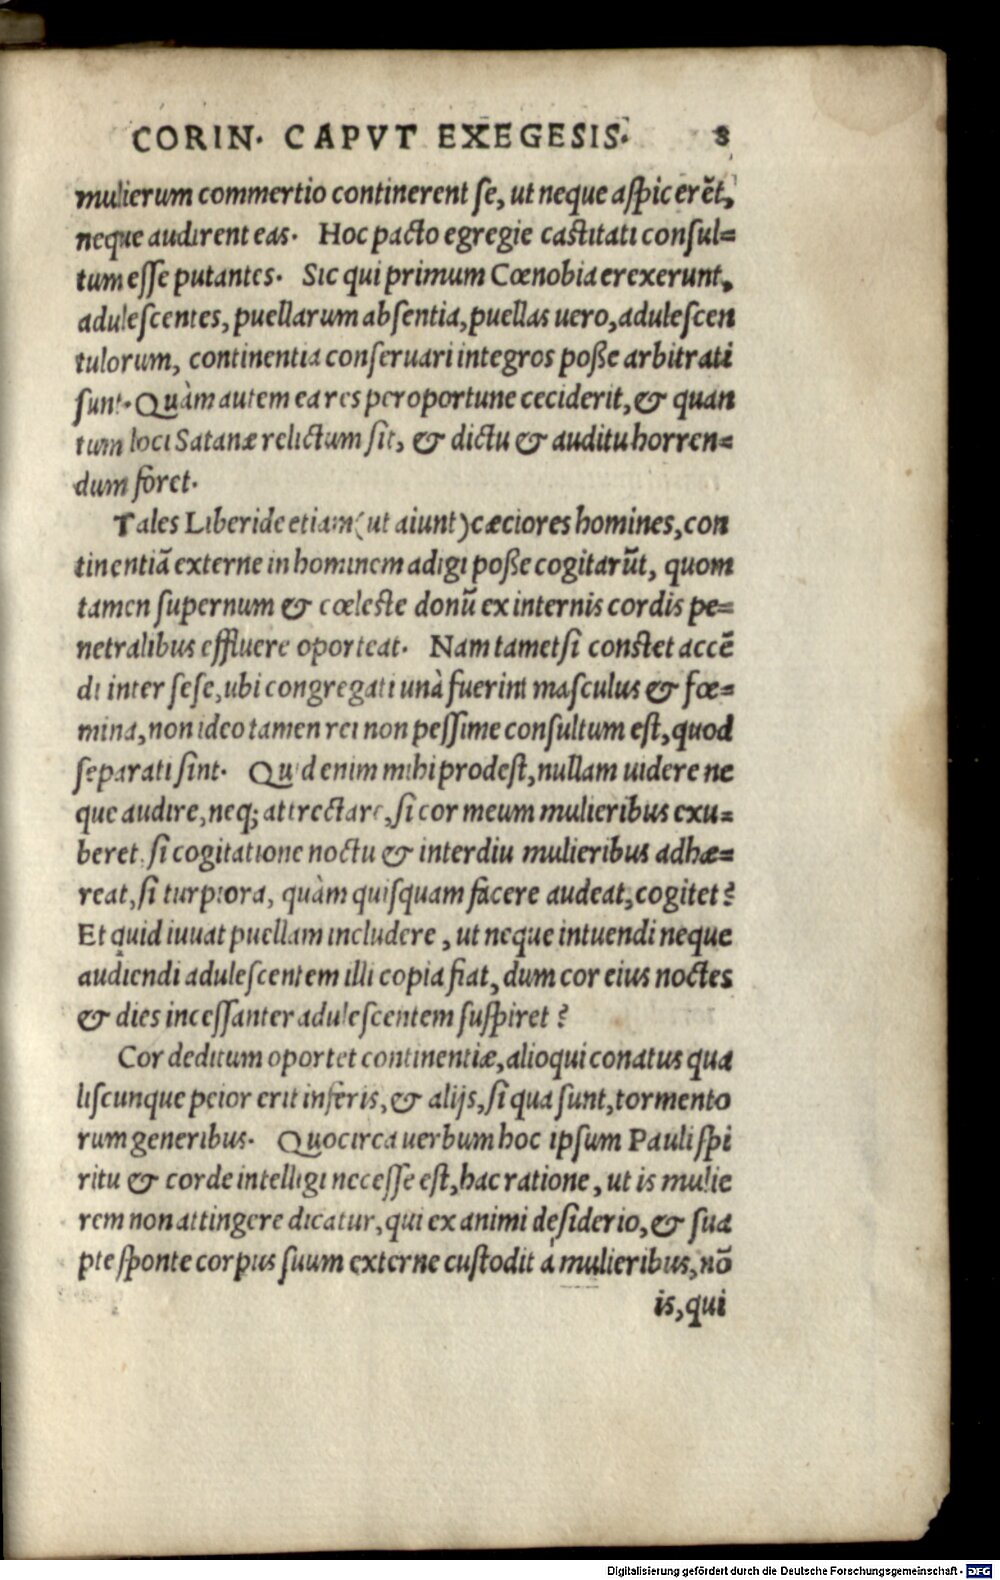 CORIN. CAPVT EXEGESIS. 8
mulierum commertio continerent se, ut neque aspicerēt,
neque audirent eas. Hoc pacto egregie castitati consul=
tum esse putantes. Sic qui primum Cœnobia erexerunt,
adulescentes, puellarum absentia, puellas uero, adulescen
tulorum, continentia conseruari integros posse arbitrati
sunt. Quàm autem ea res peroportune ceciderit, & quan
tum loci Satanæ relictum sit, & dictu & auditu horren=
dum foret.
Tales Liberide etiam (ut aiunt) cæciores homines, con
tinentiā externe in hominem adigi posse cogitarūt, quom
tamen supernum & cœleste donū ex internis cordis pe=
netralibus effluere oporteat. Nam tametsi constet accē
di inter sese, ubi congregati unà fuerint masculus & fœ=
mina, non ideo tamen rei non pessime consultum est, quod
separati sint. Quid enim mihi prodest, nullam uidere ne
que audire, neq; attrectare, si cor meum mulieribus exu=
beret, si cogitatione noctu & interdiu mulieribus adhæ=
reat, si turpiora, quàm quisquam facere audeat, cogitet?
Et quid iuuat puellam includere, ut neque intuendi neque
audiendi adulescentem illi copia fiat, dum cor eius noctes
& dies incessanter adulescentem suspiret?
Cor deditum oportet continentiæ, alioqui conatus qua
liscunque peior erit inferis, & alijs, si qua sunt, tormento
rum generibus. Quocirca uerbum hoc ipsum Pauli spi
ritu & corde intelligi necesse est, hac ratione, ut is mulie
rem non attingere dicatur, qui ex animi desiderio, & sua
pte sponte corpus suum externe custodit á mulieribus, nō
is, qui
Digitalisierung gefördert durch die Deutsche Forschungsgemeinschaft - DFG